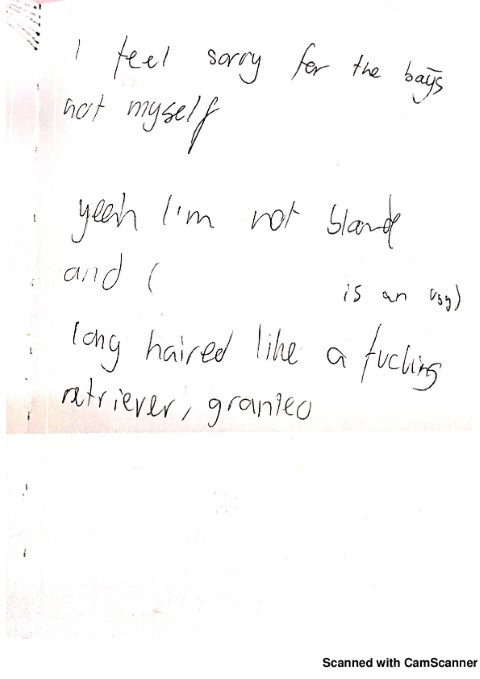 I feel sorry for the boys
not myself
yeah I'm not blonde
and (
is an
long haired like a fucking
retriever, granted
Scanned with CamScanner